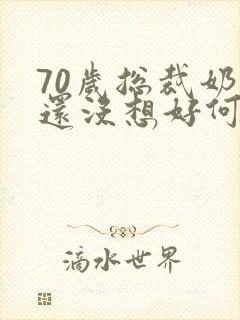 70歲總裁奶
還沒想好何
滴水世界